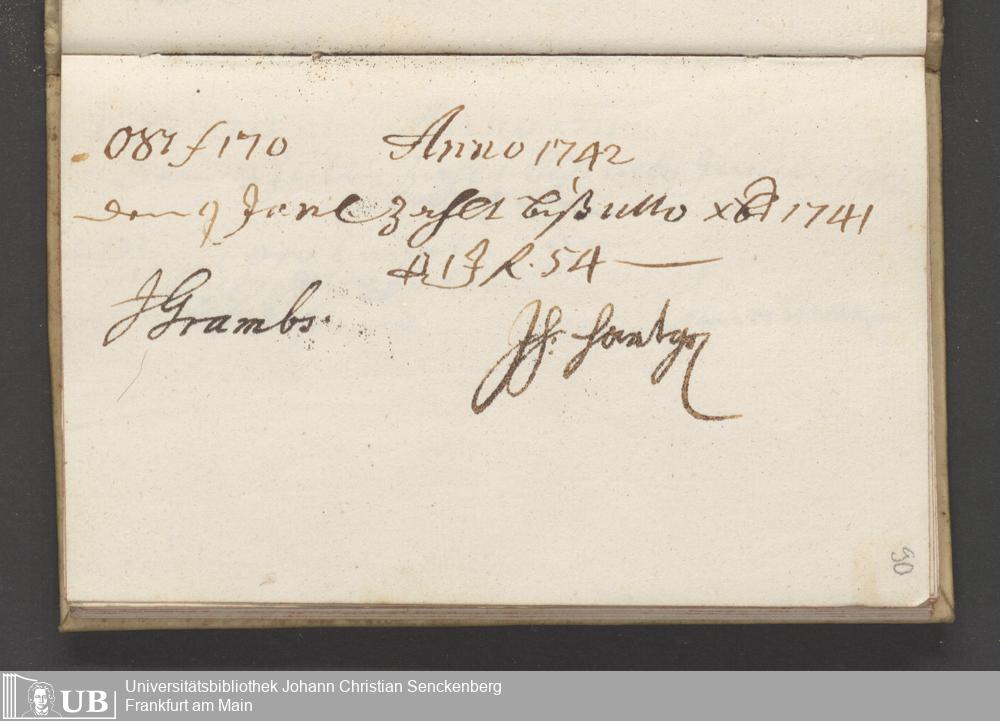 f 170 Anno 1742
den 9 Jan zahlt biß ulto xbr 1741
R. 54
JGrambs.
Jh.
90
UB Universitätsbibliothek Johann Christian Senckenberg
Frankfurt am Main